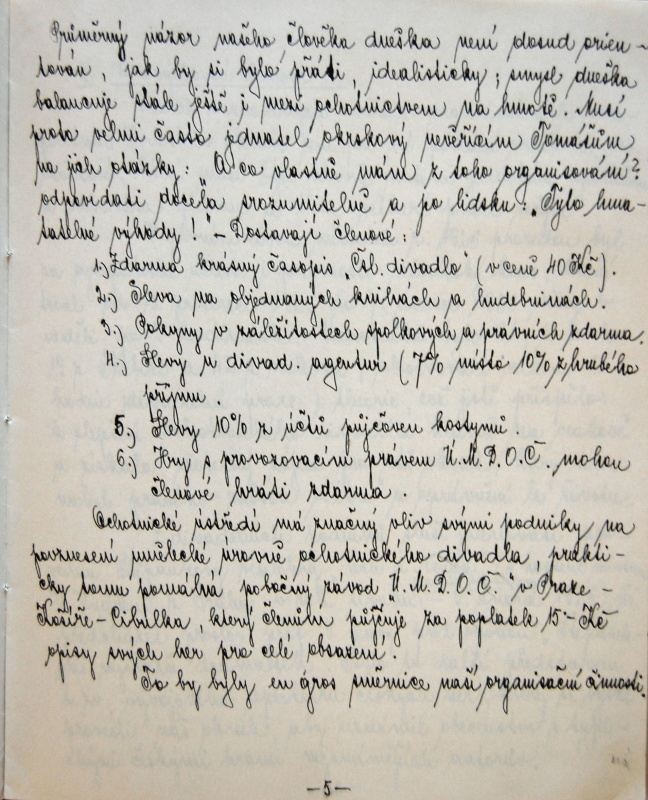 Průměrný názor našeho člověka dneška není dosud orien-
tován, jak by si bylo přáti, idealisticky; smysl dneška
balancuje stále ještě i mezi ochotnictvem na hmotě. Musí
proto velmi často jednatel okrskový nevěřícím Tomášům
na jich otázky: "A co vlastně mám z toho organisování?"
odpovídati docela srozumitelně a po lidsku: "Tyto hma-
tatelné výhody!" - Dostávají členové:
1.) Zdarma krásný časopis "Čsl. divadlo" (v ceně 40 Kč).
2.) Sleva na objednaných knihách a hudebninách.
3.) Pokyny v záležitostech spolkových a právních zdarma.
4.) Slevy u divad. agentur (7% místo 10% z hrubého
příjmu
5.) Slevy 10% z účtů půjčoven kostymů
6.) Hry s provozovacím právem Ú.M.D.O.Č. mohou
členové hráti zdarma
Ochotnické ústředí má značný vliv svými podniky na
povznesení umělecké úrovně ochotnického divadla, prakti-
cky tomu pomáhá pobočný závod "Ú.M.D.O.Č." v Praze -
Košíře - Cibulka, který členům "půjčuje" za poplatek 15- Kč
opisy svých her pro celé obsazení.
To by byly en gros směrnice naší organisační činnosti.
-5-